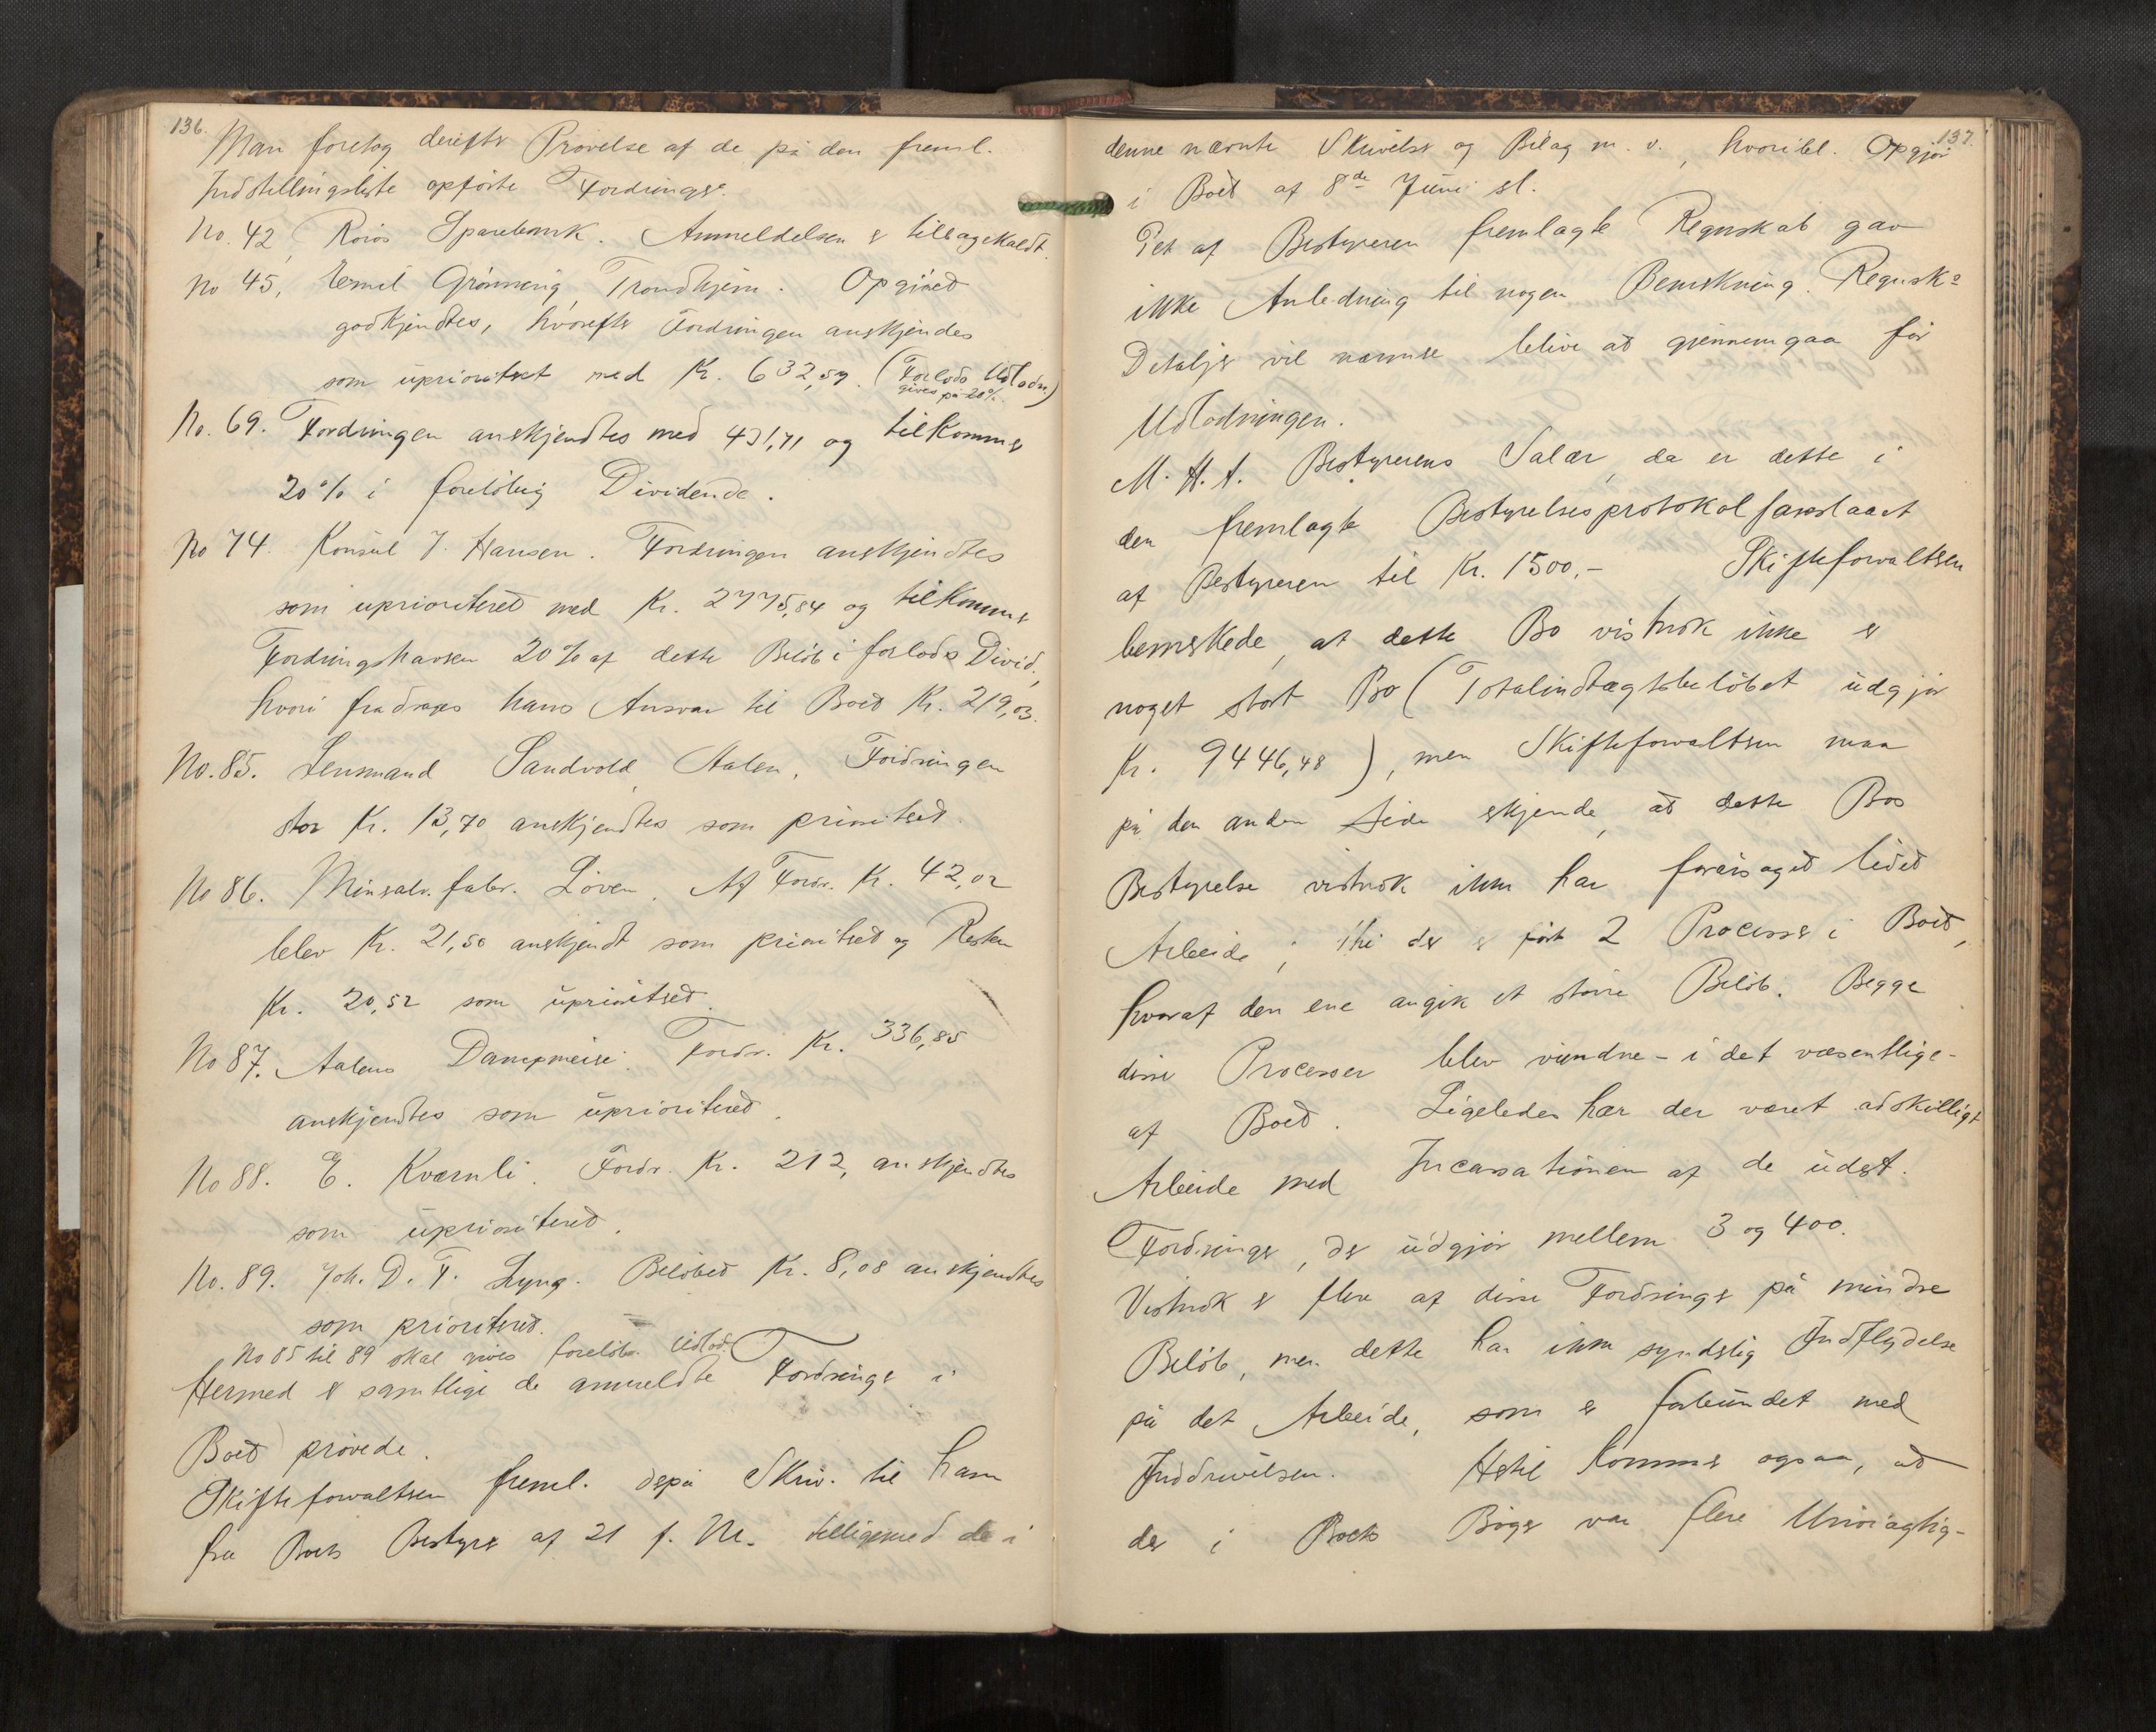 136.
Man foretog derefter Prövelse af de på den freml.
Indstillingsliste opförte Fordringer.
No. 42, Röros Sparebank. Anmeldelsen er tilbagekaldt.
No 45, Emil Grönning, Trondhjem. Opgjöret
godkjendtes, hvorefter Fordringen anerkjendes
som uprioritert med Kr. 632,59. (Forlods Udlodn.)
gives på 20%
No. 69. Fordringen anerkjendtes med 431,71 og tilkommer
20% i foreløbig Dividende.
No 74. Konsul J. Hansen. Fordringen anerkjendtes
som uprioriteret med Kr. 2775,84 og tilkommer
Fordringshaveren 20% af dette Belöb i forlods Divid.,
hvori fradrages hans Ansvar til Boet Kr. 219,03.
No. 85. Lensmand Sandvold, Aalen. Fordringen
stor Kr. 13,70 anerkjendtes som prioriteret.
No 86. Mineralv. fabr. Löven. Af Fordr. Kr. 42,02
blev Kr. 21,50 anerkjendt som prioriteret og Resten
Kr. 20,52 som uprioriteret.
No 87. Aalens Dampmeieri. Fordr. Kr. 336,85
anerkjendtes som uprioriteret.
No 88. E. Kværnli. Fordr. Kr. 212, anerkjendtes
som uprioriteret.
No. 89. Joh. D. F. Lyng. Belöbet Kr. 8,08 anerkjendtes
som prioriteret.
No 85 til 89 skal gives foreløb. Udlod.
Hermed er samtlige de anmeldte Fordringer i
Boet prövede.
Skifteforvalteren freml. derpå Skriv. til ham
fra Boets Bestyrer af 21 f. M. tilligemed de i
137.
denne nævnte Skrivelser og Bilag m. v., hvoribl. Opgjör
i Boet af 8de Juni sl.
Det af Bestyreren fremlagte Regnskab gav
ikke Anledning til nogen Bemerkning. Regnsk.
Detaljer vil nærmere blive at gjennemgaa før
Udlodningen.
M. H. t. Bestyrerens Salær, da er dette i
den fremlagte Bestyrelsesprotokol foreslaaet
af Bestyreren til Kr. 1500.- Skifteforvalteren
bemerkede, at dette Bo vistnok ikke er
noget stort Bo (Totalindtægtsbelöbet udgjør
Kr. 9446,48), men Skifteforvalteren maa
på den anden Side erkjende, at dette Bos
Bestyrelse vistnok ikke har forårsaget lidet
Arbeide; thi der er fört 2 Processer i Boet,
hvoraf den ene angik et större Belöb. Begge
disse Processer blev vundne - i det væsentlige -
af Boet. Ligeledes har der været adskilligt
Arbeide med Incassationen af de udest.
Fordringer, der udgjør mellem 3 og 400.
Vistnok er flere af disse Fordringer på mindre
Belöb, men dette har ikke synderlig Indflydelse
på det Arbeide, som er forbundet med
Inddrivelsen. Hertil kommer ogsaa, at
der i Boets Böger var flere Unöiagtig-